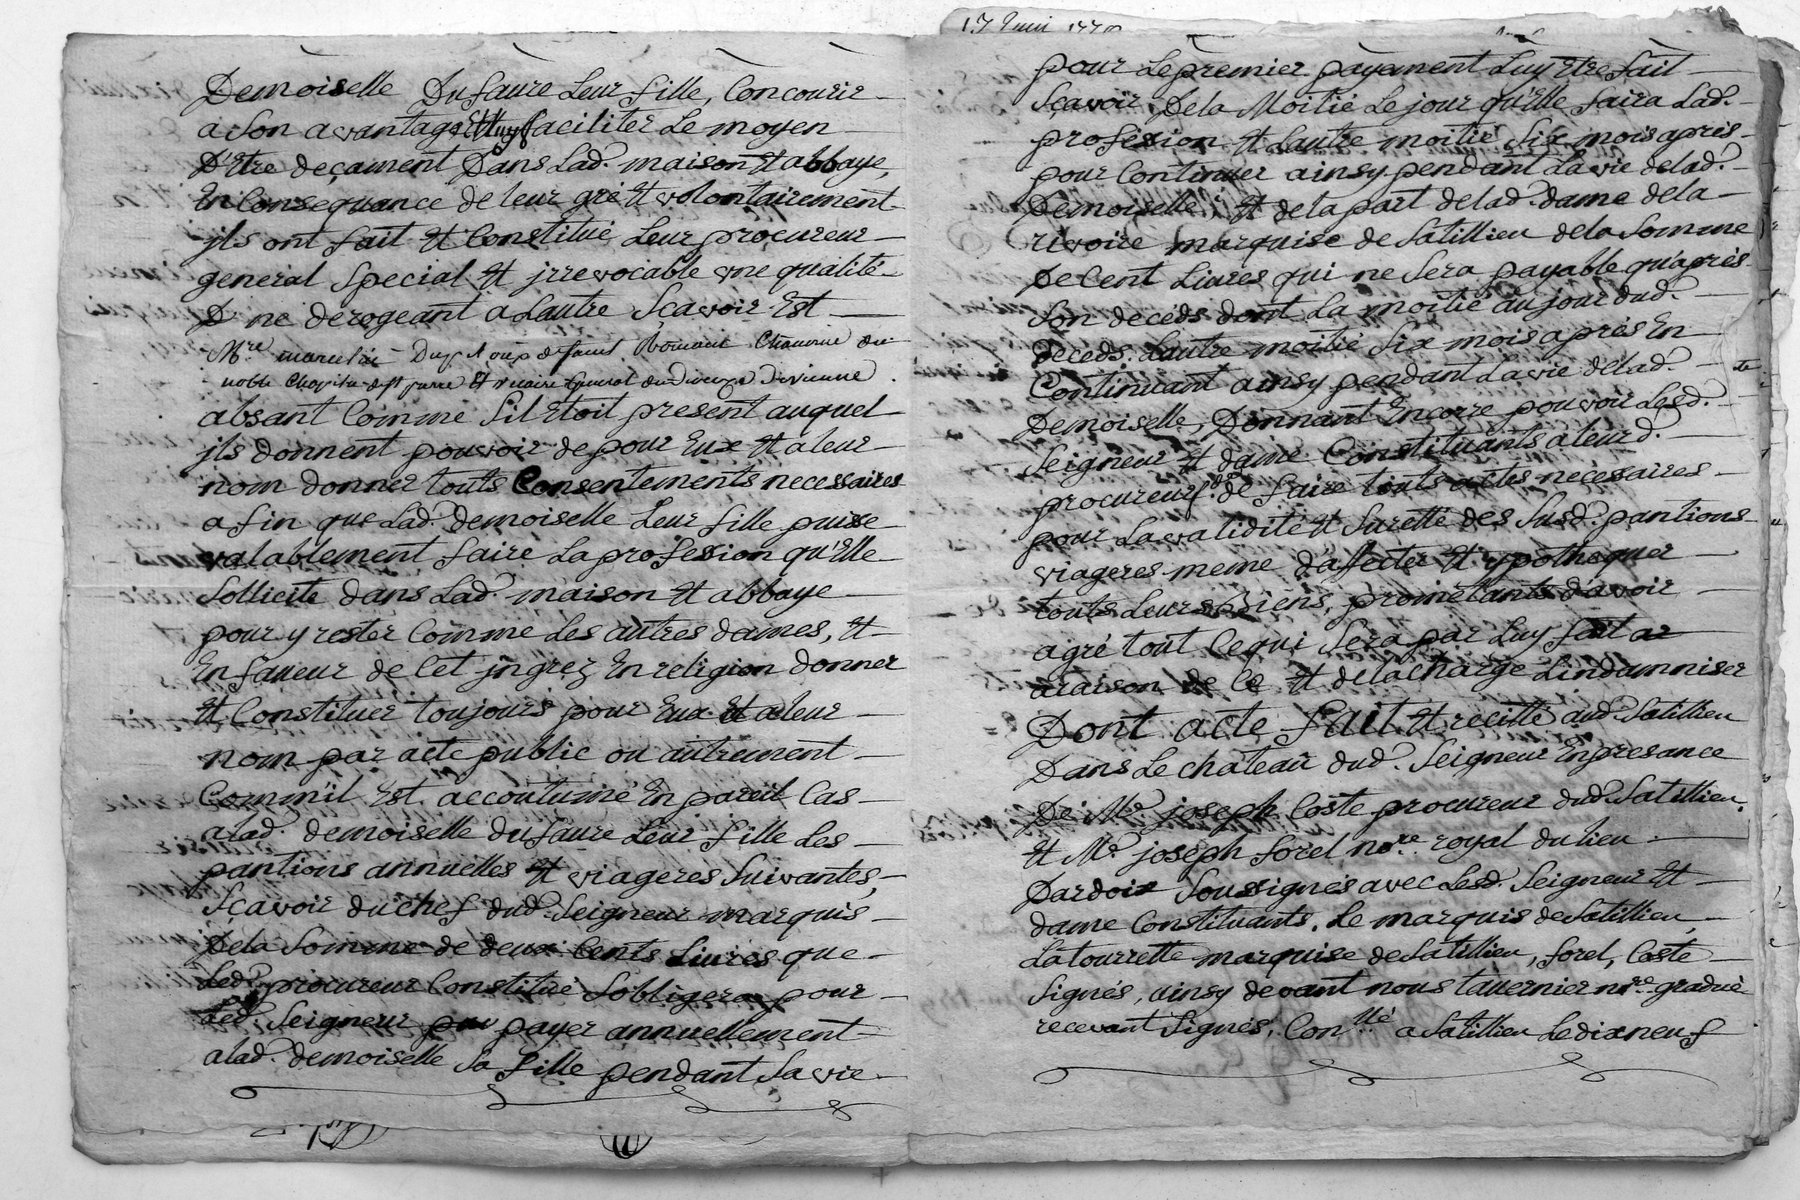 Demoiselle Dufaure Leur fille, Concourir
a Son avantage Et luy faciliter Le moyen
D'Etre deçament Dans Lad. maison Et abbaye,
En Consequance de leur gré Et volontairement
jls ont fait Et Constitué Leur procureur
general Special Et jrrevocable vne qualité
D ne derogeant a Lautre Sçavoir Est
Mre marcelin Chanoine du
noble Chapitre de St pierre Et vicaire general du Dioceze De vienne
absant Comme Sil Etoit present auquel
jls donnent pouvoir de pour Eux Et a leur
nom donner touts Consentements necessaires
afin que Lad. demoiselle Leur fille puisse
valablement faire La profession qu'Elle
Sollicite dans Lad. maison Et abbaye
pour y rester Comme Les autres dames, Et
En faveur de Cet jngrez En religion donner
Et Constituer toujours pour Eux Et a leur
nom par acte public ou autrement
Comm'il Est accoutumé En pareil Cas
a lad. demoiselle dufaure Leur fille Les
pantions annuelles Et viageres Suivantes,
Sçavoir du chef dud. Seigneur marquis
De la Somme de deux Cents Livres que
Led. procureur Constitué S'obligera pour
Led. Seigneur payer annuellement
a lad. demoiselle Sa fille pendant Sa vie
17 Juin
pour Le premier payement Luy Etre fait
Sçavoir De la Moitié Le jour qu'Elle faira Lad.
profession Et Lautre moitié Six mois après
pour Continuer ainsy pendant La vie de lad.
Demoiselle, Et de la part de lad. dame de la
rivoire marquise de Satillieu de la Somme
De Cent Livres qui ne Sera payable qu'après
Son decéds dont La moitié au jour dud.
decéds. Lautre moitié Six mois après En
Continuant ainsy pendant La vie de lad.
Demoiselle, Donnant Encorre pouvoir Lesd.
Seigneur Et dame Constituants a leurd.
procureur de faire touts actes necessaires
pour La validité Et Suretté des Susd. pantions
viageres meme d'affecter Et ypothequer
touts Leurs Biens, prometants d'avoir
agré tout Ce qui Sera par Luy fait
a raison de Ce Et de la charge L'indamniser
Dont acte fait Et recitté aud. Satillieu
Dans Le chateau dud. Seigneur En presance
De Me joseph Coste procureur dud. Satillieu
Et Me joseph forel nore royal du lieu
Dardoix Soussignés avec Lesd. Seigneur Et
dame Constituants. Le marquis de Satillieu,
Latourrette marquise de Satillieu, forel, Coste
Signés, ainsy devant nous tavernier nore gradué
recevant Signés, Conllé a Satillieu Le dixneuf